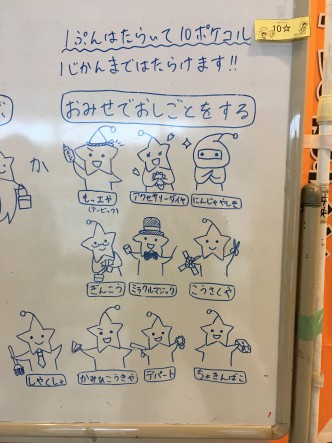 1ぷんはたらいて10ポケコル
10☆
1じかんまではたらけます!!
か
おみせでおしごとをする
アクセサリーダイヤ
にんじゃやしき
ぎんこう
ミラクルマジック
こうさくや
しやくしょ
かみひこうきや
デパート
ちょきんばこ